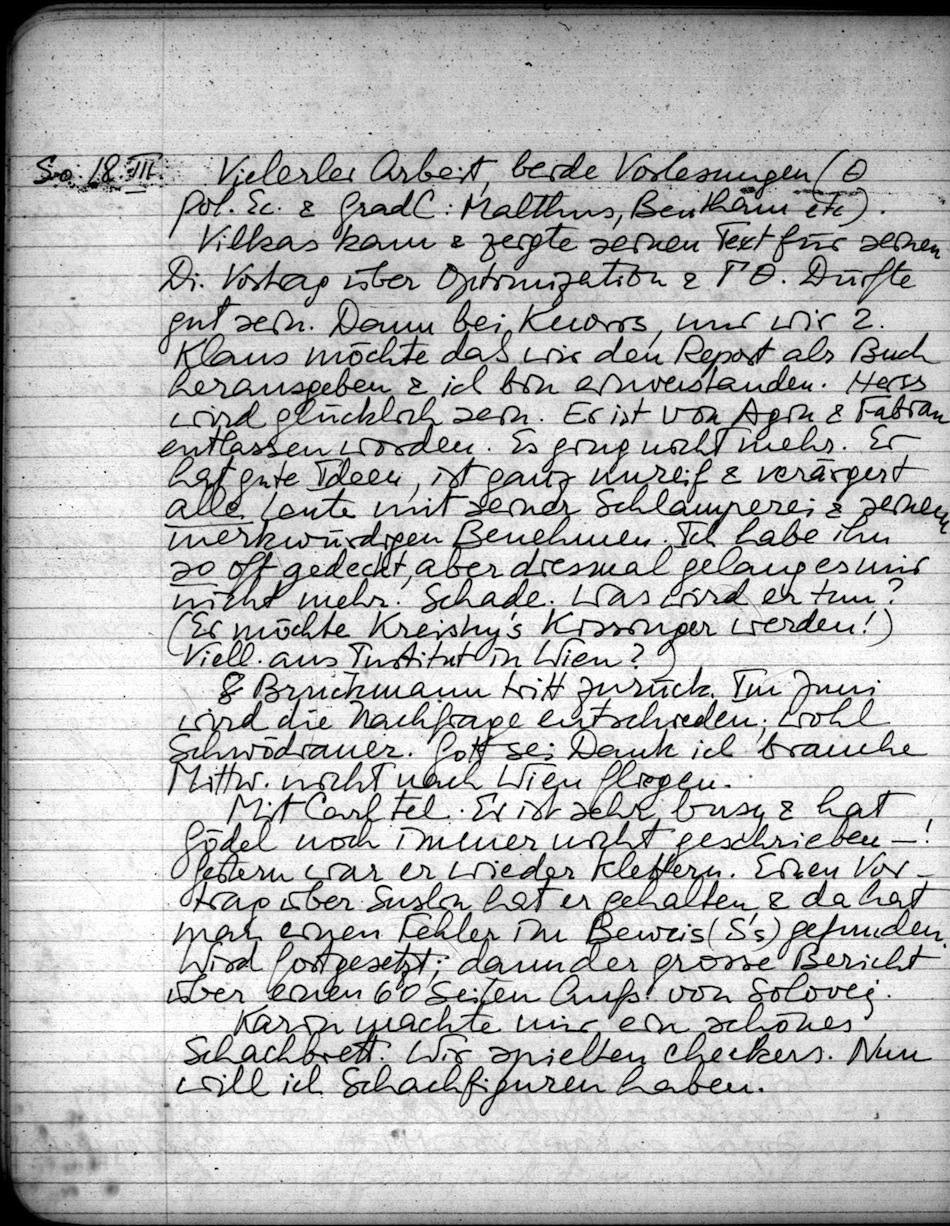 So. 18. III. Vielerlei Arbeit, beide Vorlesungen (Θ
pol. Ec. & Grad C: Malthus, Bentham etc).
Vilkas kam & zeigte seinen Text für seinen
Di. Vortrag über Optimization & ΓΘ. Dürfte
gut sein. Dann bei Knorrs, nur wir 2.
Klaus möchte das wir den Report als Buch
herausgeben & ich bin einverstanden. Herss
wird glücklich sein. Er ist von Agin & Fabian
entlassen worden. Es ging nicht mehr. Er
hat gute Ideen, ist ganz unreif & verärgert
alle Leute mit seiner Schlamperei & seinem
merkwürdigen Benehmen. Ich habe ihn
so oft gedeckt, aber diesmal gelang es mir
nicht mehr. Schade. Was wird er tun?
(Er möchte Kreisky's Kissinger werden!)
Viell. ans Institut in Wien?)
& Bruckmann tritt zurück. Im Juni
wird die Nachfrage entschieden; wohl
Schwödiauer. Gott sei Dank ich brauche
Mittw. nicht nach Wien fliegen.
Mit Carl tel. Er ist sehr busy & hat
Gödel noch immer nicht geschrieben —!
Gestern war er wieder klettern. Einen Vor-
trag über Suslin hat er gehalten & da hat
man einen Fehler im Beweis (S's) gefunden.
Wird fortgesetzt; dann der grosse Bericht
über einen 60 Seiten Aufs. von Solovej.
Karin machte mir ein schönes
Schachbrett. Wir spielten checkers. Nun
will ich Schachfiguren haben.